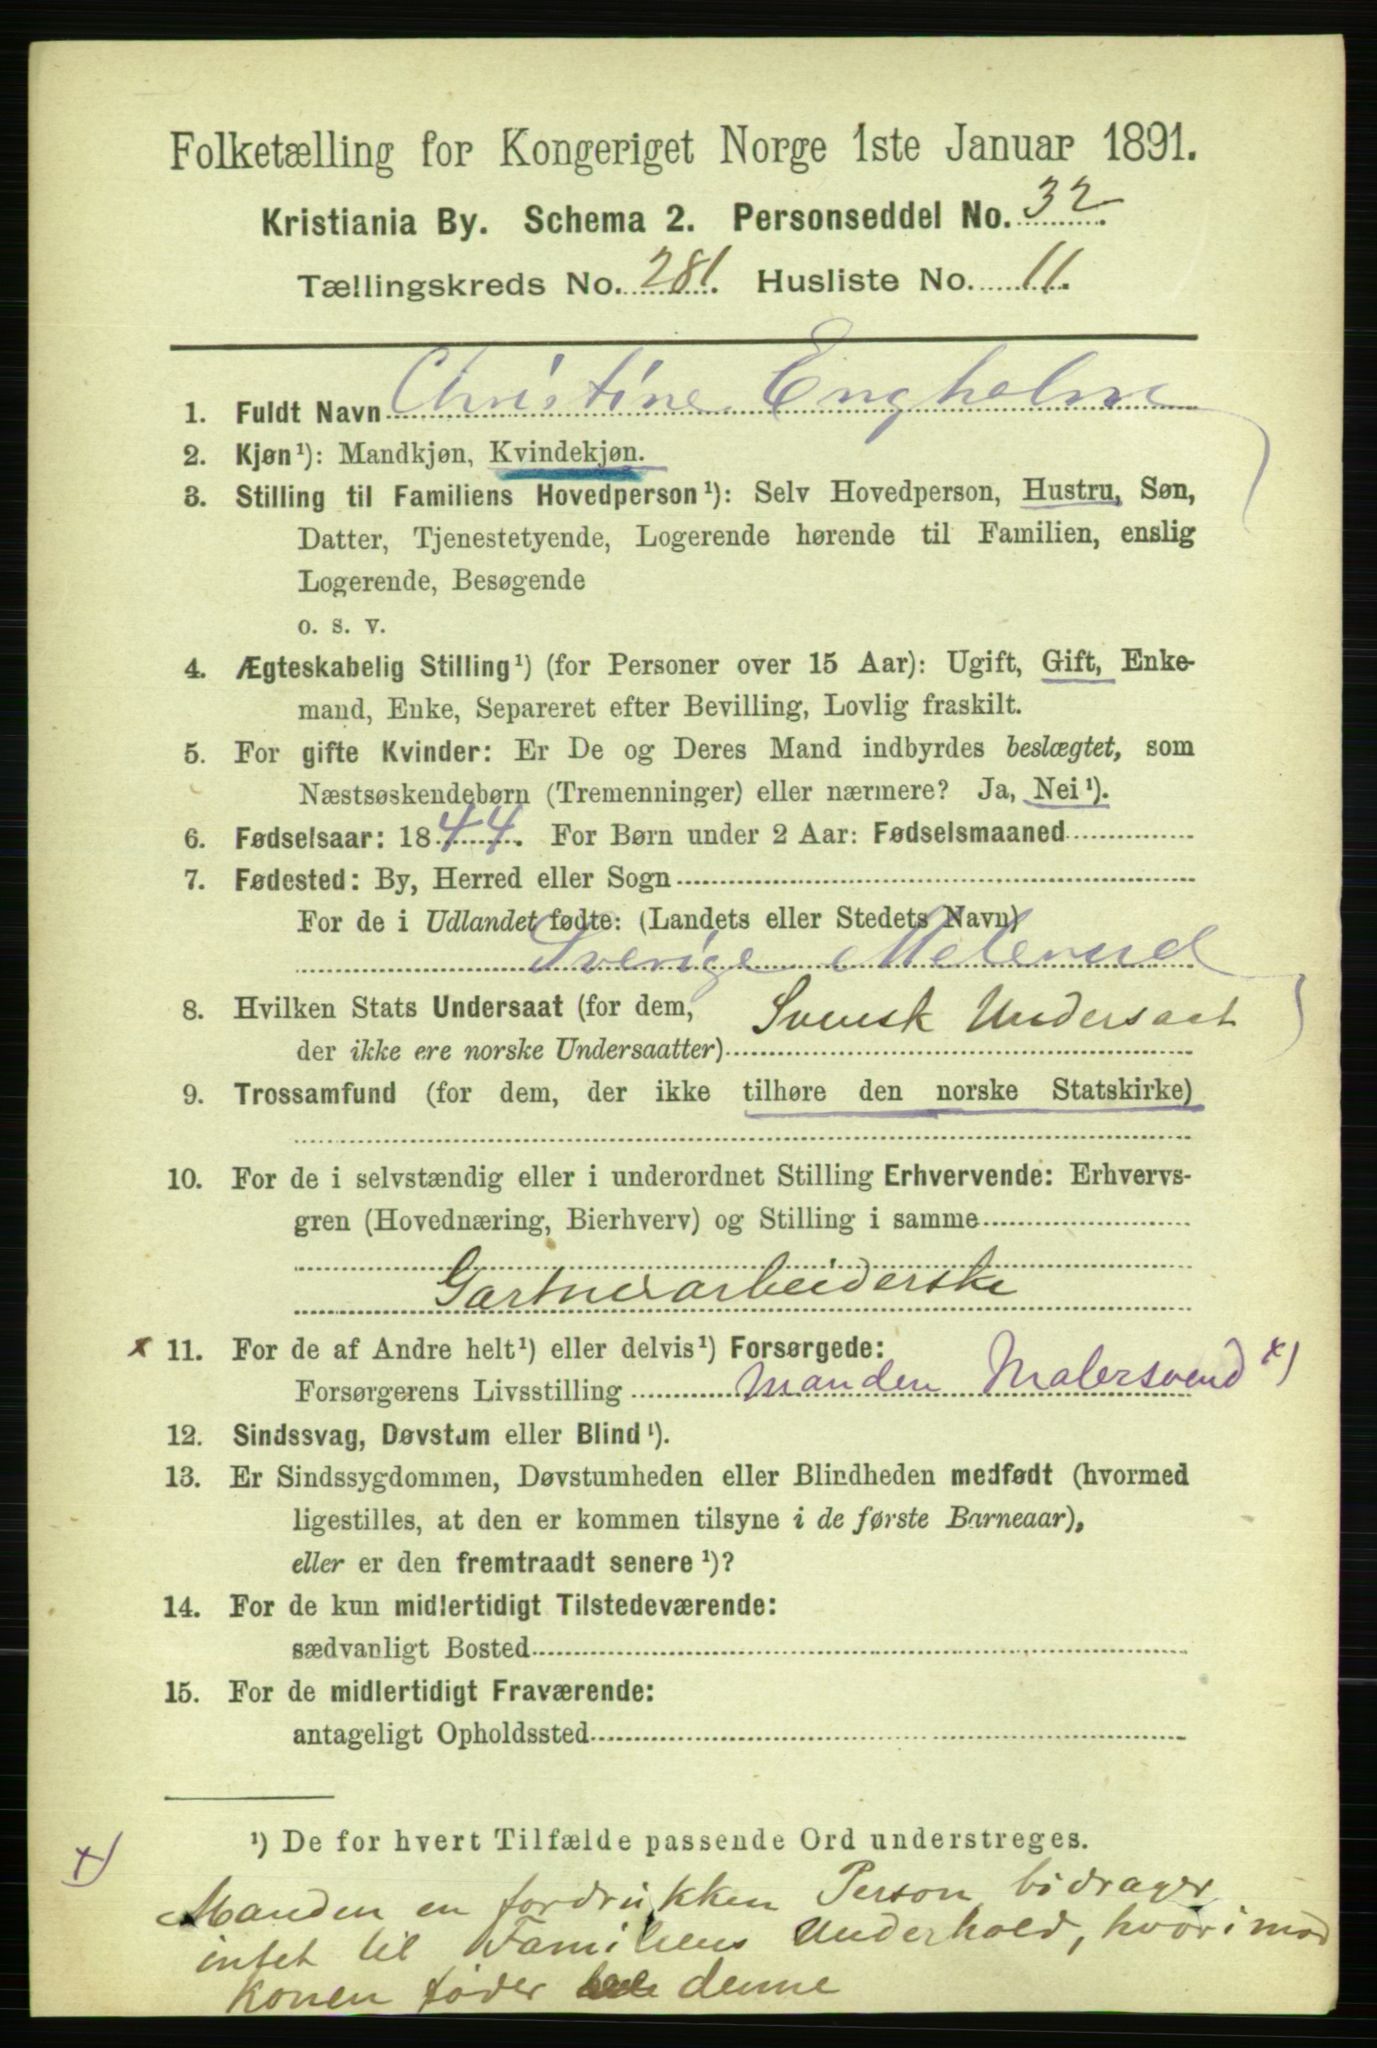 Folketælling for Kongeriget Norge 1ste Januar 1891.
Kristiania By. Schema 2. Personseddel No. 32.
Tællingskreds No. 281. Husliste No. 11.
1. Fuldt Navn Christine Engholm
2. Kjøn¹): Mandkjøn, Kvindekjøn.
3. Stilling til Familiens Hovedperson¹): Selv Hovedperson, Hustru, Søn,
Datter, Tjenestetyende, Logerende hørende til Familien, enslig
Logerende, Besøgende
o. s. v.
4. Ægteskabelig Stilling¹) (for Personer over 15 Aar): Ugift, Gift, Enke-
mand, Enke, Separeret efter Bevilling, Lovlig fraskilt.
5. For gifte Kvinder: Er De og Deres Mand indbyrdes beslægtet, som
Næstsøskendebørn (Tremenninger) eller nærmere? Ja, Nei¹).
6. Fødselsaar: 1844. For Børn under 2 Aar: Fødselsmaaned
7. Fødested: By, Herred eller Sogn
For de i Udlandet fødte: (Landets eller Stedets Navn)
Sverige Melerud
8. Hvilken Stats Undersaat (for dem, Svensk Undersaat
der ikke ere norske Undersaatter)
9. Trossamfund (for dem, der ikke tilhøre den norske Statskirke)
10. For de i selvstændig eller i underordnet Stilling Erhvervende: Erhvervs-
gren (Hovednæring, Bierhverv) og Stilling i samme
Gartnerarbeiderske
x 11. For de af Andre helt¹) eller delvis¹) Forsørgede:
Forsørgerens Livsstilling Manden Malersvend x)
12. Sindssvag, Døvstum eller Blind¹).
13. Er Sindssygdommen, Døvstumheden eller Blindheden medfødt (hvormed
ligestilles, at den er kommen tilsyne i de første Barneaar),
eller er den fremtraadt senere¹)?
14. For de kun midlertidigt Tilstedeværende:
sædvanligt Bosted
15. For de midlertidigt Fraværende:
antageligt Opholdssted
¹) De for hvert Tilfælde passende Ord understreges.
x)
Manden en fordrukken Person bidrager
intet til Familiens Underhold, hvorimod
Konen føder denne